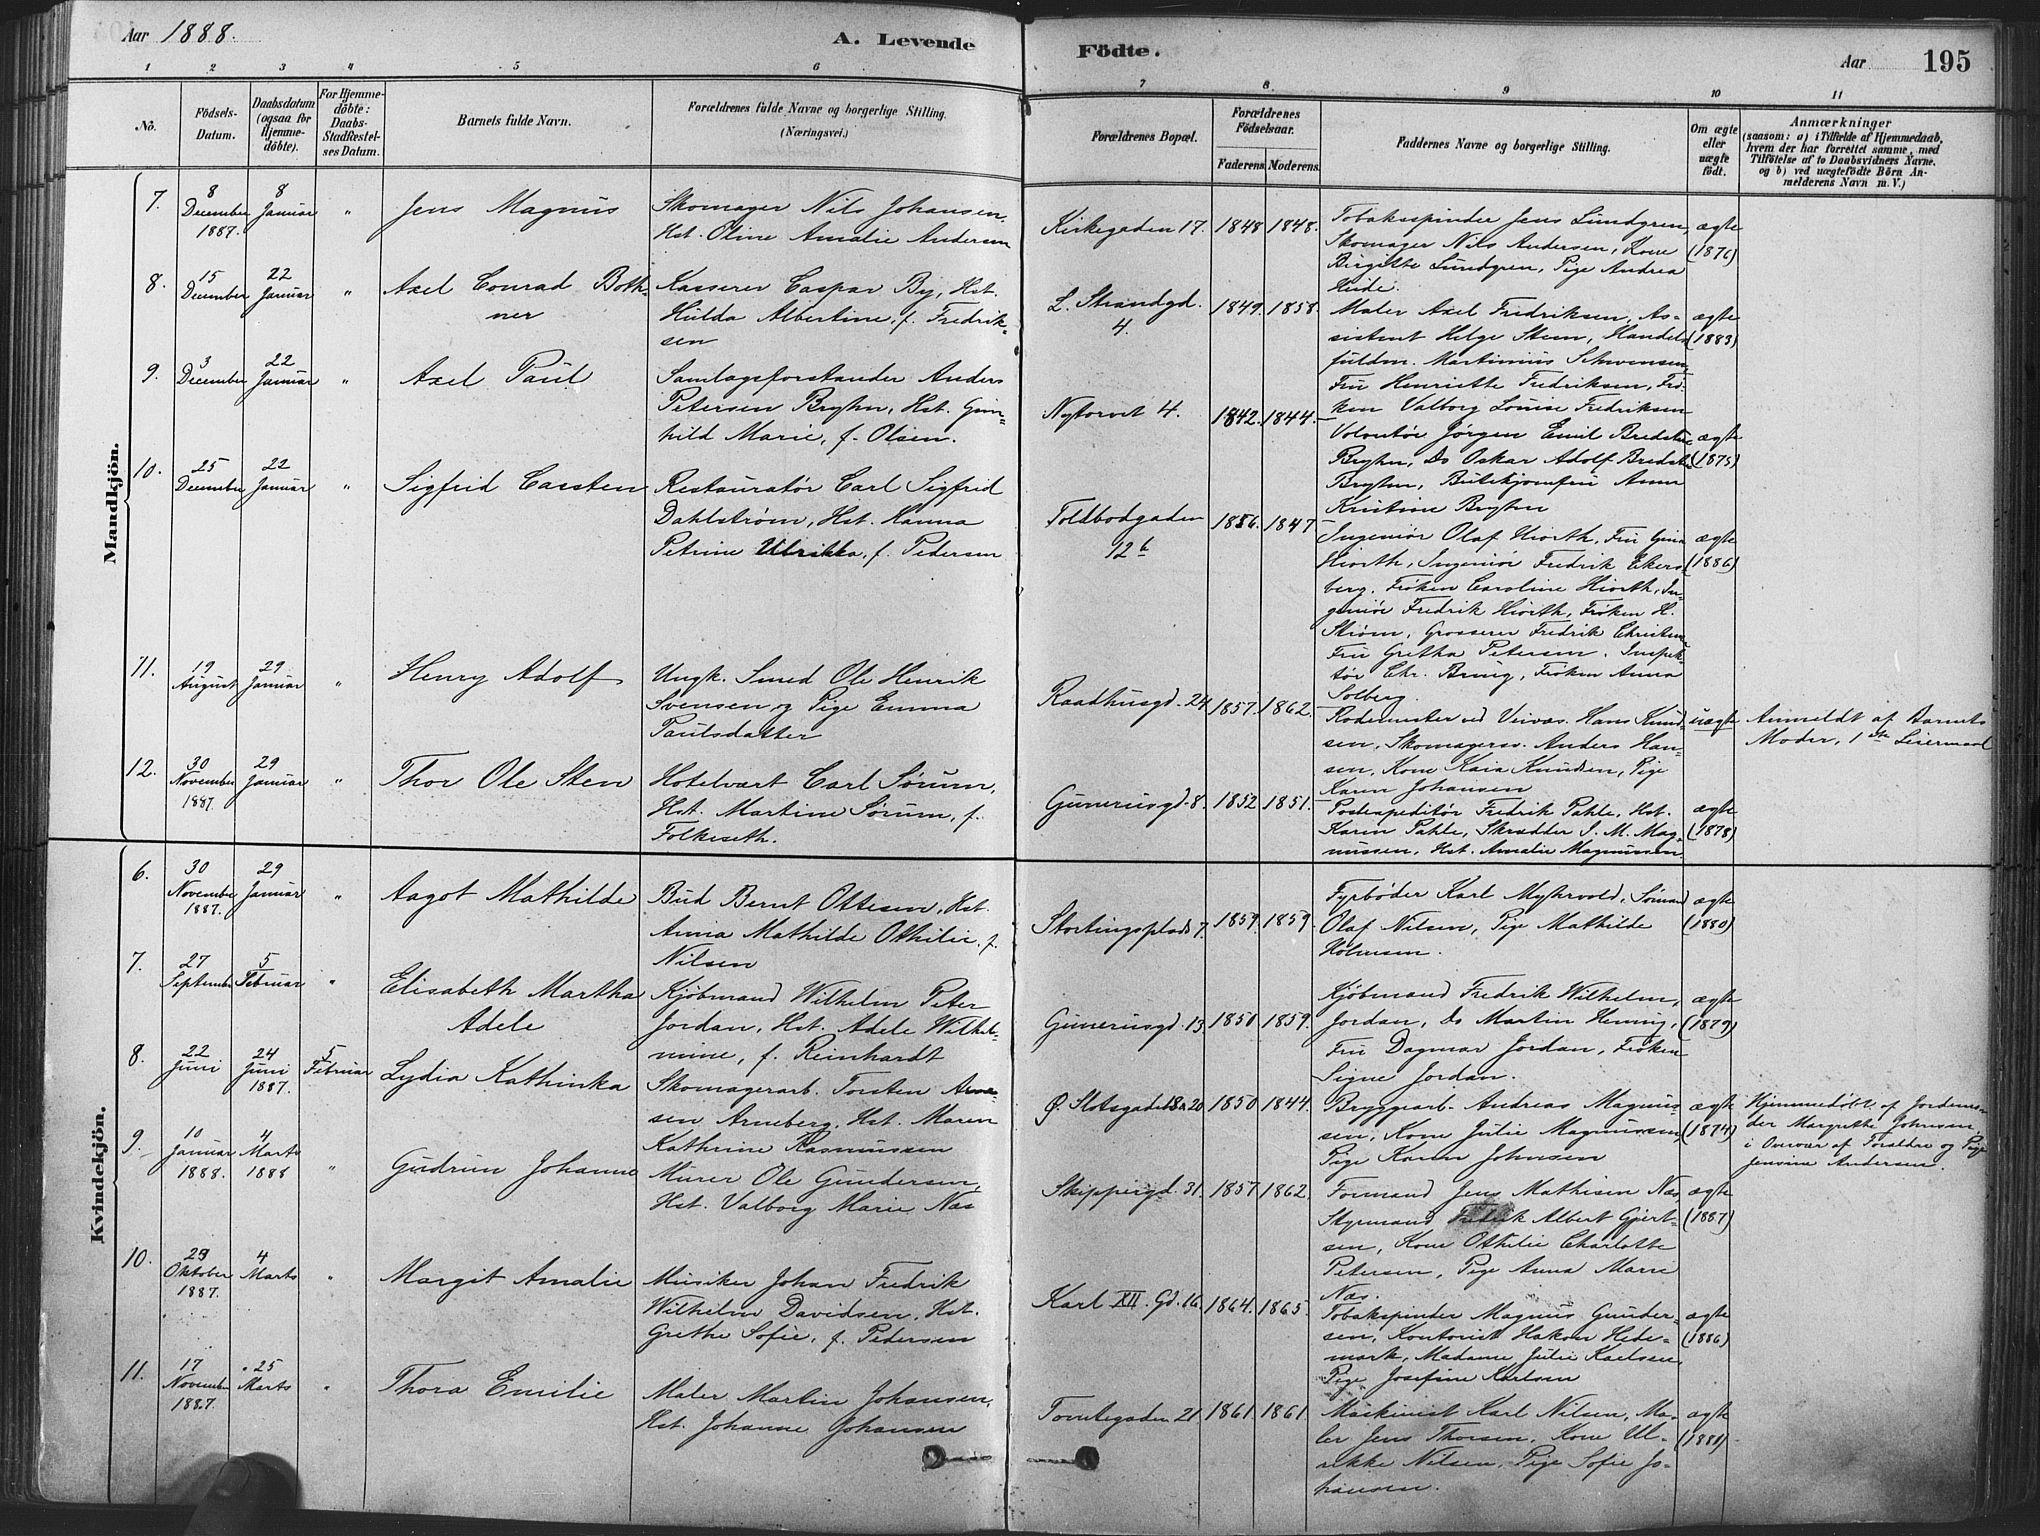 Aar 1888.
A. Levende
Födte.
Aar
195
1
2
3
4
5
6
7
8
9
10
11
No.
Födsels-
Datum.
Daabsdatum
(ogsaa for
Hjemme-
döbte).
For Hjemme-
döbte:
Daabs-
Stadfæstel-
ses Datum.
Barnets fulde Navn.
Forældrenes fulde Navne og borgerlige Stilling.
(Næringsvei.)
Forældrenes Bopæl.
Forældrenes
Födselsaar.
Faderens.
Moderens.
Faddernes Navne og borgerlige Stilling.
Om ægte
eller
uægte
födt.
Anmærkninger
(saasom: a) i Tilfælde af Hjemmedaab,
hvem der har forrettet samme, med
Tilföielse af to Daabsvidners Navne.
og b) ved uægtefödte Börn An-
melderens Navn m. V.)
Mandkjön.
7.
8
December
1887.
8
Januar
"
Jens Magnus
Skomager Nils Johansen,
Hst. Oline Amalie Andersen
Kirkegaden 17.
1848
1848.
Tobaksspinder Jens Lundgren,
Skomager Nils Andersen, Kone
Birgitte Lundgren, Pige Andrea
Hude.
ægte
(1876)
8.
15
December
22
Januar
"
Axel Conrad Both-
ner
Kasserer Caspar By, Hst.
Hulda Albertine, f. Fredrik-
sen
L. Strandgd.
4.
1849.
1858.
Maler Axel Fredriksen, As-
sistent Helge Steen, Handels
fuldm. Martinius Schwensen,
Fru Henriette Fredriksen, Frö-
ken Valborg Louise Fredriksen
ægte
(1883)
9.
3
December
22
Januar
"
Axel Paul
Samlagsforstander Anders
Petersen Bryhn, Hst. Gun-
hild Marie, f. Olsen.
Nytorvet 4.
1842.
1844.
Volontør Jørgen Emil Bredstue
Bryhn, Do Oskar Adolf Bredst.
Bryhn, Butikjomfru Anna
Kristine Bryhn
ægte
(1875)
10.
25
December
22
Januar
"
Sigfrid Carsten
Restauratør Carl Sigfrid
Dahlstrøm, Hst. Hanna
Petrine Ulrikka, f. Pedersen
Toldbodgaden
12 b
1856.
1847
Ingeniør Olaf Hiorth, Fru Gina
Hiorth, Ingeniør Fredrik Ekers-
berg, Frøken Caroline Hiorth, In-
geniør Fredrik Hiorth, Frøken H.
Strøm, Grosserer Fredrik Christensen
Fru Gretha Petersen, Inspek-
tør Chr. Bruug, Frøken Anna
Solberg.
ægte
(1886)
11.
19
August
29
Januar
"
Henry Adolf
Ungk. Smed Ole Henrik
Svensen og Pige Emma
Paulsdatter
Raadhusgd. 24
1857.
1862.
Rodemester ved Veivæs. Hans Knud-
sen, Skomagersv. Anders Han-
sen, Kone Kaia Knudsen, Pige
Karen Johansen
uægte
Anmeldt af Barnets
Moder, 1ste Leiermaal
12.
30
November
1887.
29
Januar
"
Thor Ole Sten
Hotelvært Carl Sørum,
Hst. Martine Sørum, f.
Folkeseth.
Gunerusgd. 8.
1852
1851.
Postexpeditør Fredrik Pahle, Hst.
Karen Pahle, Skrædder J. M. Mag-
nussen, Hst. Amalie Magnussen.
ægte
(1878)
Kvindekjön.
6.
30
November
1887.
29
Januar
"
Aagot Mathilde
Bud Bernt Ottesen, Hst.
Anna Mathilde Othilie, f.
Nilsen
Stortingsplads 7.
1859.
1859.
Fyrbøder Karl Myhrvold, Sømand
Olaf Nilsen, Pige Mathilde
Holmsen.
ægte
(1880)
7.
27
September
5
Februar
"
Elisabeth Martha
Adele
Kjøbmand Wilhelm Peter
Jordan, Hst. Adele Wilhel-
mine, f. Reinhardt
Gunerusgd. 13
1850
1859.
Kjøbmand Fredrik Wilhelm
Jordan, Do Martin Hennig,
Fru Dagmar Jordan, Frøken
Signe Jordan.
ægte
(1879)
8.
22
Juni
24
Juni
1887.
5
Februar
Lydia Kathinka
Skomagerarb. Torsten Arne-
sen Arneberg, Hst. Maren
Kathrine Rasmussen
Ø. Slotsgade 18 a 20
1850
1844.
Bryggearb. Andreas Magnus-
sen, Kone Julie Magnussen
Pige Karen Johnsen
ægte
(1874)
Hjemmedøbt af Jordemo-
der Margrethe Johnsen,
i Overvær af Forældre og Pige
Jensine Andersen.
9.
10
Januar
1888.
4
Marts
1888
"
Gudrun Johanne
Murer Ole Gundersen,
Hst. Valborg Marie Næs
Skippergd. 31.
1857
1862.
Formand Jens Mathisen Næs
Styrmand Fredrik Albert Gjert-
sen, Kone Othilie Charlotte
Petersen, Pige Anna Marie
Næs.
ægte
(1887)
10.
29
Oktober
1887.
4
Marts
"
Margit Amalie
Musiker Johan Fredrik
Wilhelm Davidsen, Hst.
Grethe Sofie, f. Pedersen
Karl XII. Gd. 16.
1864.
1865.
Tobakspinder Magnus Gunder-
sen, Kontorist Hakon Hede-
mark, Madame Julie Karlsen
Pige Josefine Karlsen
ægte
(1886)
11.
17
November
1887.
25
Marts
"
Thora Emilie
Maler Martin Johansen,
Hst. Johanne Johansen
Tomtegaden 21
1861.
1861.
Maskinist Karl Nilsen, Ma-
ler Jens Thorsen, Kone Ul-
rikke Nilsen, Pige Sofie Jo-
hansen.
ægte
(1881)